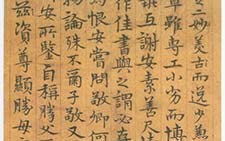 之二妙美而逸少兼
草雖專工小劣而博
乖互謝安素善尺
作佳書與之謂必存
為恨安嘗問敬卿何
物論殊不爾子敬又
安所鑒自稱勝父
資尊顯勝母